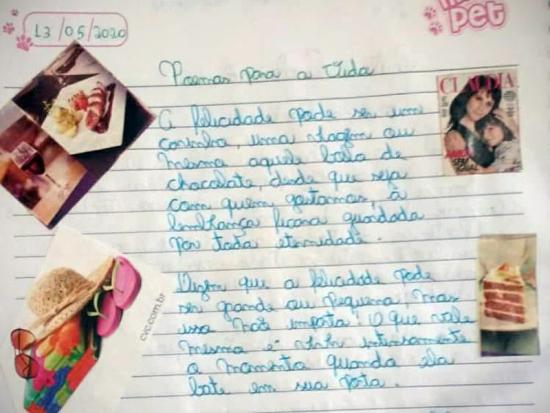 13/05/2020
pet
Poemas para a Vida
A felicidade pode ser um
carinho, uma viagem ou
mesmo aquele bolo de
chocolate, desde que seja
com quem gostamos, à
lembrança ficara guardada
por toda eternidade.
CLAUDIA
Dizem que a felicidade pode
ser grande ou pequena mas
isso não importa. O que vale
mesmo é vivhr intensamente
o momento quando ela
bate em sua porta.
cvc.com.br